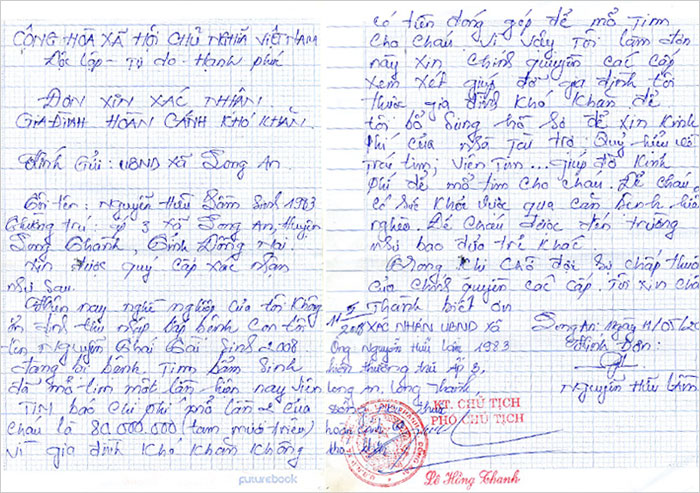 CỘNG HÒA XÃ HỘI CHỦ NGHĨA VIỆT NAM
Độc lập - Tự do - Hạnh phúc
ĐƠN XIN XÁC NHẬN
GIA ĐÌNH HOÀN CẢNH KHÓ KHĂN.
Kính Gửi: UBND Xã Long An
Tôi tên: Nguyễn Hữu Lâm Sinh 1983
Thường trú: ấp 3 xã Long An, Huyện
Long Thành, Tỉnh Đồng Nai
Xin được quý cấp xác nhận
như sau.
Hiện nay nghề nghiệp của tôi không
ổn định thu nhập bấp bênh con tôi
tên Nguyễn Thái Sinh 2008
đang bị bệnh. Tim bẩm sinh
đã mổ tim một lần hiện nay viện
TIM báo chi phí mổ lần 2 của
cháu là 80.000.000 (tám mươi triệu)
vì gia đình khó khăn không
futurebook
có tiền đóng góp để mổ Tim
cho cháu. Vì vậy Tôi làm đơn
này xin chính quyền các cấp
xem xét giúp đỡ gia đình tôi
thuộc gia đình khó khăn để
tôi bổ sung hồ sơ để xin kinh
phí của nhà tài trợ: Quỹ hiểu về
trái tim; viện Tim... giúp đỡ kinh
phí để mổ tim cho cháu. Để cháu
có sức khỏe vượt qua căn bệnh hiểm
nghèo. Để cháu được đến trường
như bao đứa trẻ khác.
Trong khi chờ đợi sự chấp thuận
của chính quyền các cấp. Tôi xin chân
Thành biết ơn
XÁC NHẬN UBND Xã
Long An; ngày 11/05/20
Ông Nguyễn Hữu Lâm 1983
Người làm Đơn:
hiện thường trú ấp 3,
Long An, Long Thành
Nguyễn Hữu Lâm
KT. CHỦ TỊCH
PHÓ CHỦ TỊCH
Lê Hồng Thanh